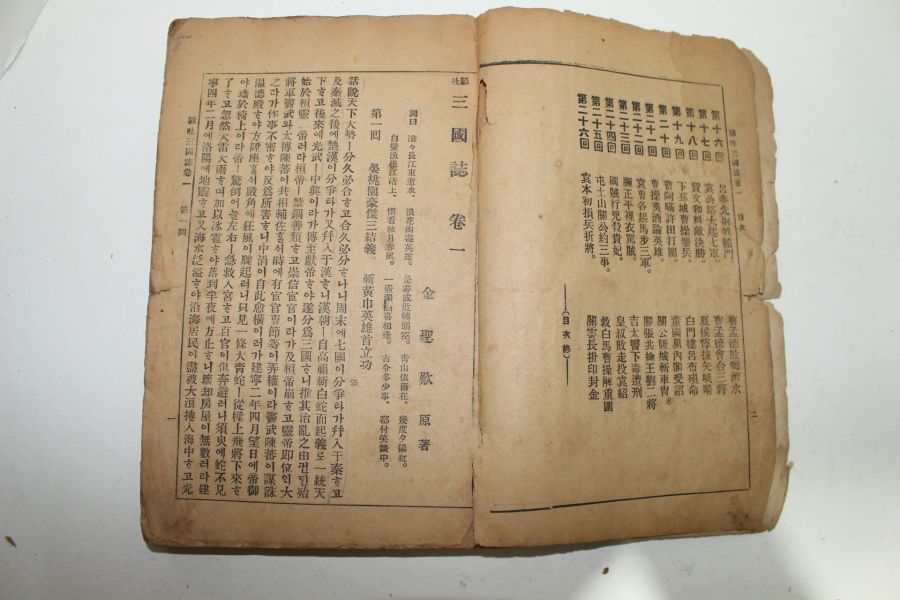 第十六回 呂奉先射戟轅門。 曹孟德敗師淯水
第十七回 袁公路大起七軍。 曹孟德會合三將
第十八回 賈文和料敵決勝。 夏侯惇拔矢啖睛
第十九回 下邳城曹操鏖兵。 白門樓呂布殞命
第二十回 曹阿瞞許田打圍。 董國舅內閣受詔
第二十一回 曹操煑酒論英雄。 關公賺城斬車冑
第二十二回 袁曹各起馬步三軍。 關張共擒王劉二將
第二十三回 禰正平裸衣罵賊。 吉太醫下毒遭刑
第二十四回 國賊行兇殺貴妃。 皇叔敗走投袁紹
第二十五回 屯土山關公約三事。 救白馬曹操解重圍
第二十六回 袁本初損兵折將。 關雲長掛印封金
(目次終)
二
懸吐 三國誌 卷一
金聖歎 原著
詞曰 滾々長江東逝水、 浪花淘盡英雄。 是非成敗轉頭空。 靑山依舊在、 幾度夕陽紅。
白髮漁樵江渚上、 慣看秋月春風。 一壺濁酒喜相逢。 古今多少事、 都付笑談中。
第一回 宴桃園豪傑三結義。 斬黃巾英雄首立功
話說天下大勢ㅣ分久必合ᄒᆞ고合久必分ᄒᆞ나니周末에七國이分爭라가幷入于秦ᄒᆞ고
及秦滅之後에楚漢이分爭라가又幷入于漢ᄒᆞ니漢朝ㅣ自高祖斬白蛇而起義로一統天
下ᄒᆞ고後來에光武ㅣ中興이라가傳至獻帝ᄒᆞ야遂分爲三國ᄒᆞ니推其治亂之由컨ᄃᆡ殆
始於桓靈二帝러라桓帝ㅣ禁錮善類ᄒᆞ고崇信宦官이라가及桓帝崩ᄒᆞ고靈帝卽位의大
將軍竇武와太傅陳蕃이共相輔佐ᄒᆞᆯᄉᆡ時에有宦官曹節等이弄權이라竇武陳蕃이謀誅
之라가作事不密ᄒᆞ야反爲所害ᄒᆞ니中涓이自此愈橫이러라建寧二年四月望日에帝御
溫德殿ᄒᆞ야方陞座ᄒᆞᆯᄉᆡ殿角에狂風이驟起러니只見一條大靑蛇ㅣ從樑上飛將下來ᄒᆞ
야蟠於椅上이라帝ㅣ驚倒어늘左右ㅣ急救入宮ᄒᆞ고百官이俱奔避러니須臾에蛇不見
了ᄒᆞ고忽然大雷大雨ᄒᆞ며加以冰雹ᄒᆞ야落到半夜에方止ᄒᆞ니壞却房屋이無數러라建
寧四年二月에洛陽에地震ᄒᆞ고又海水泛溢ᄒᆞ야沿海居民이盡被大浪捲入海中ᄒᆞ고光
懸吐三國誌卷一 第一回
一